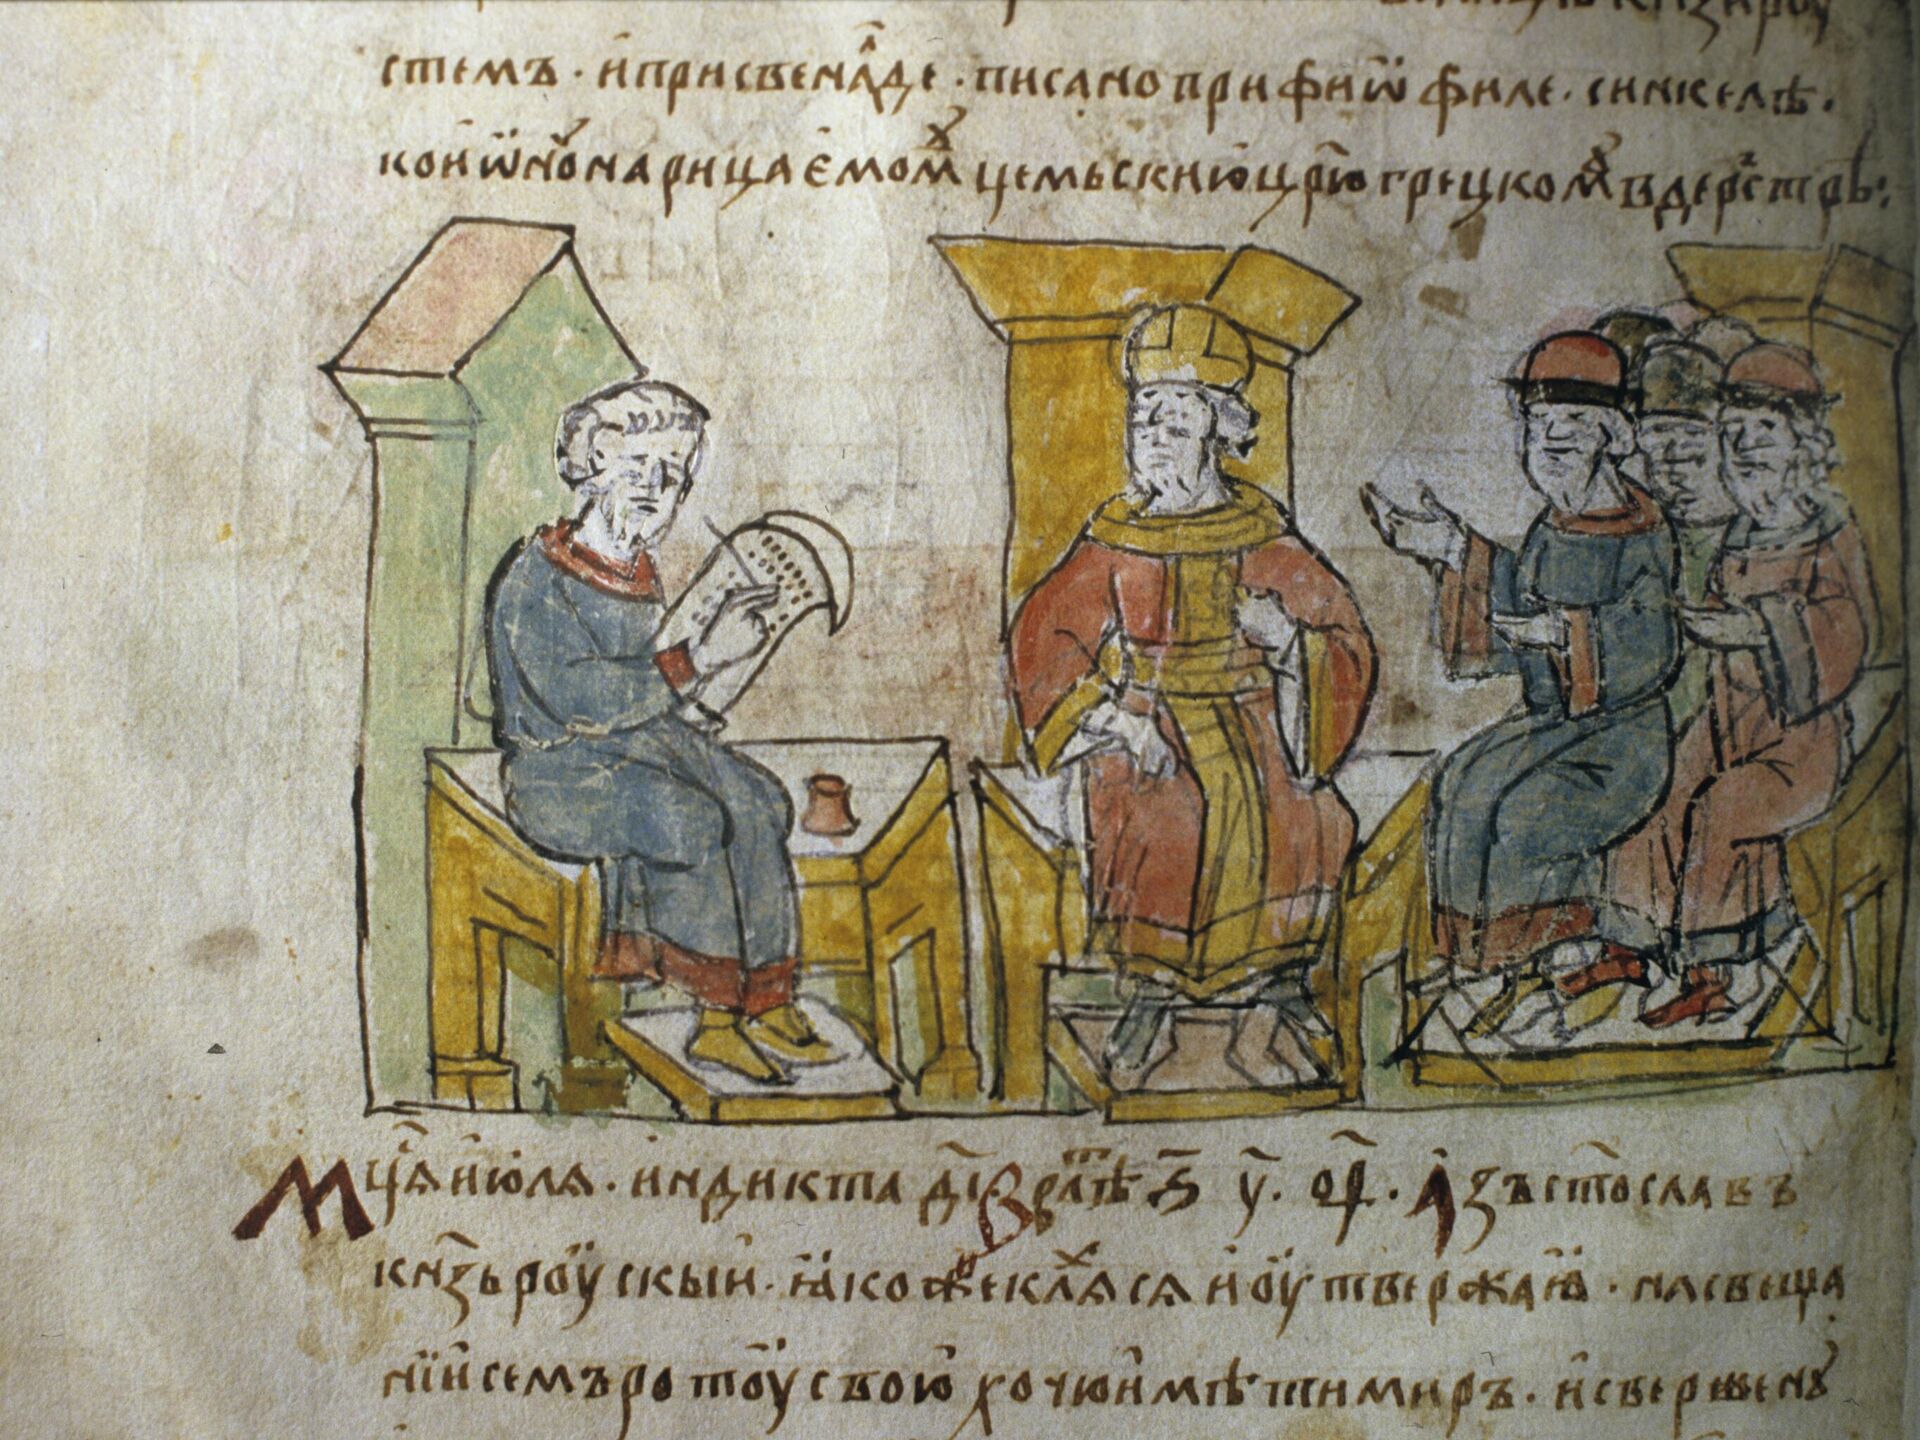 стемъ · и҆присвенл̑де · писаноприфиѡ҆филе · синкелѣ ·
коиѡ҆ноу҆нарицаемомⷹ цемьскию҆цр҃югрецкомⷹ въдерⷭ҇трѣ:
Мцⷭ҇аию҆ля · индиктаді҃ · Влѣⷮ ҂ѕ҃ у҃ · о҃ф · Азъст҃ославъ
кнз҃ьроу҆скыи · ꙗ҆кожекляхсяиоу҆твержаꙗ҆ · насвеща
нїисемъротоу҆своюхочюимѣтимиръ · исвершенⷹ